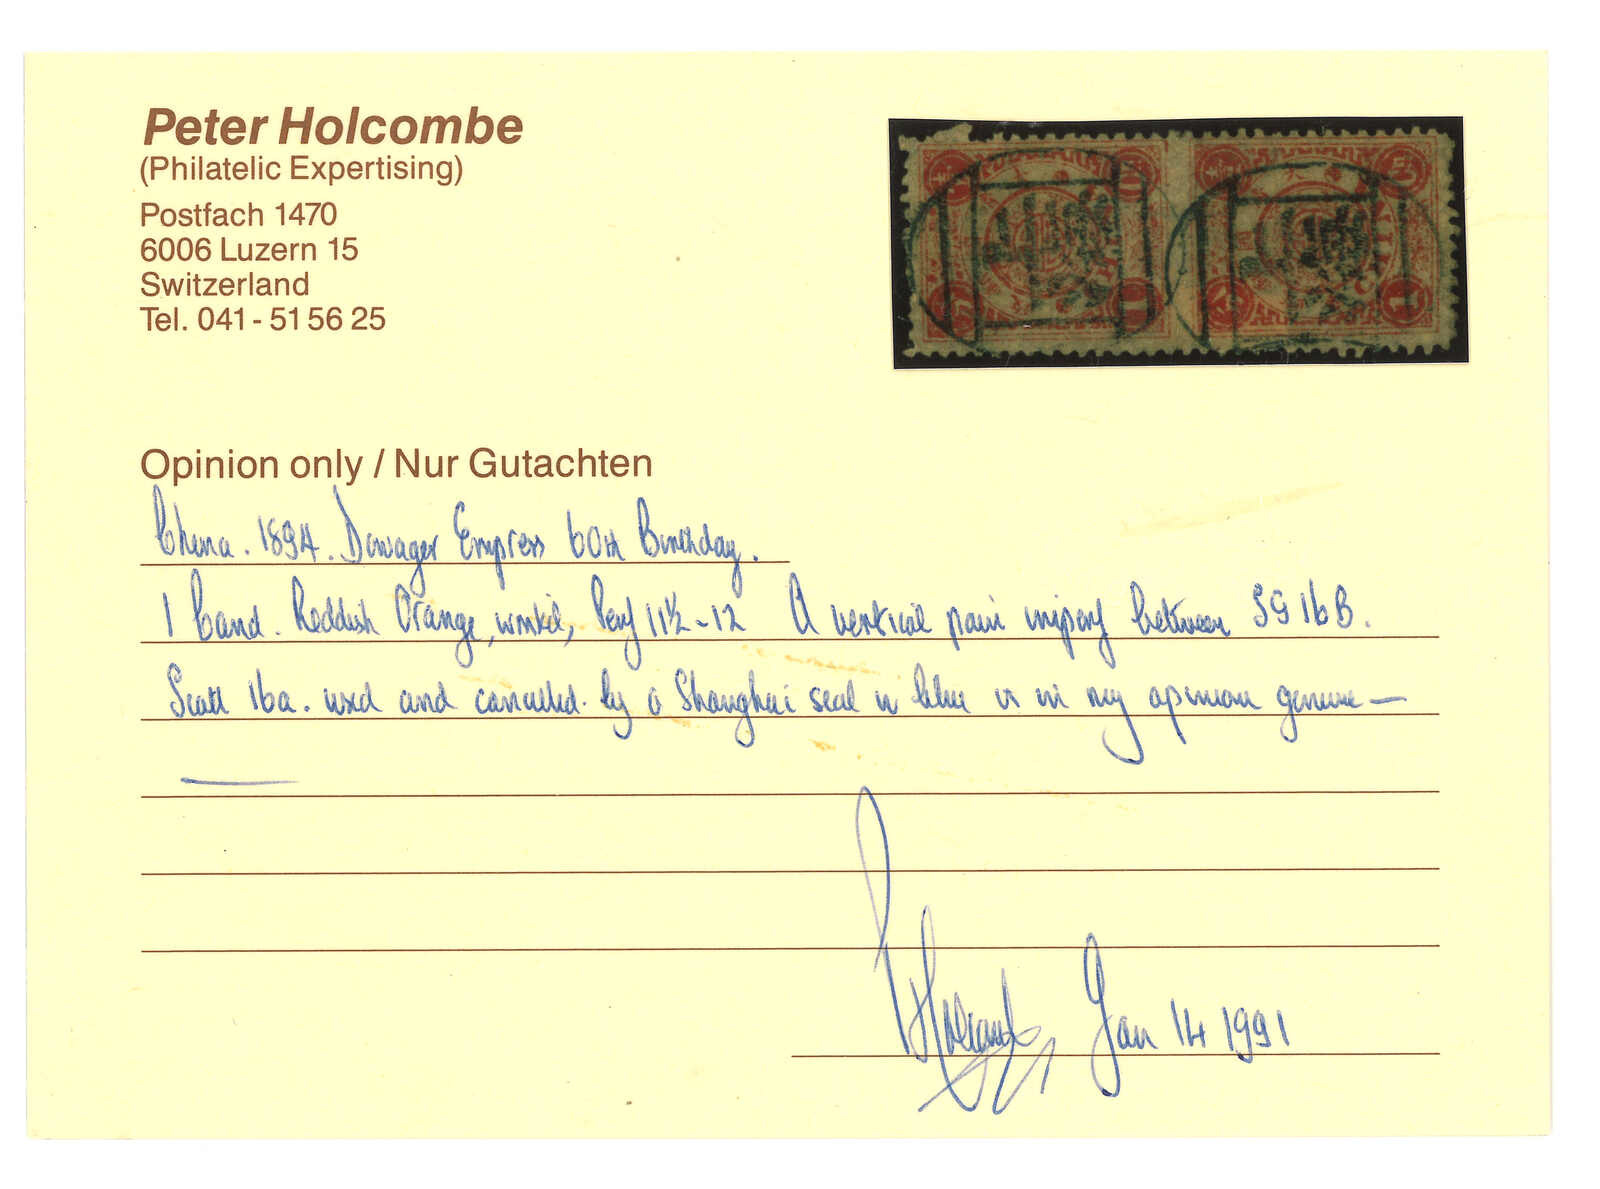 Peter Holcombe
(Philatelic Expertising)
Postfach 1470
6006 Luzern 15
Switzerland
Tel. 041 - 51 56 25
Opinion only / Nur Gutachten
China. 1894. Dowager Empress 60th Birthday.
1 Cand. Reddish Orange, wmkd, Perf 11½-12 A vertical pair imperf between SG 16B.
Scott 16a. used and cancelled by a Shanghai seal in blue is in my opinion genuine —
Jan 14 1991